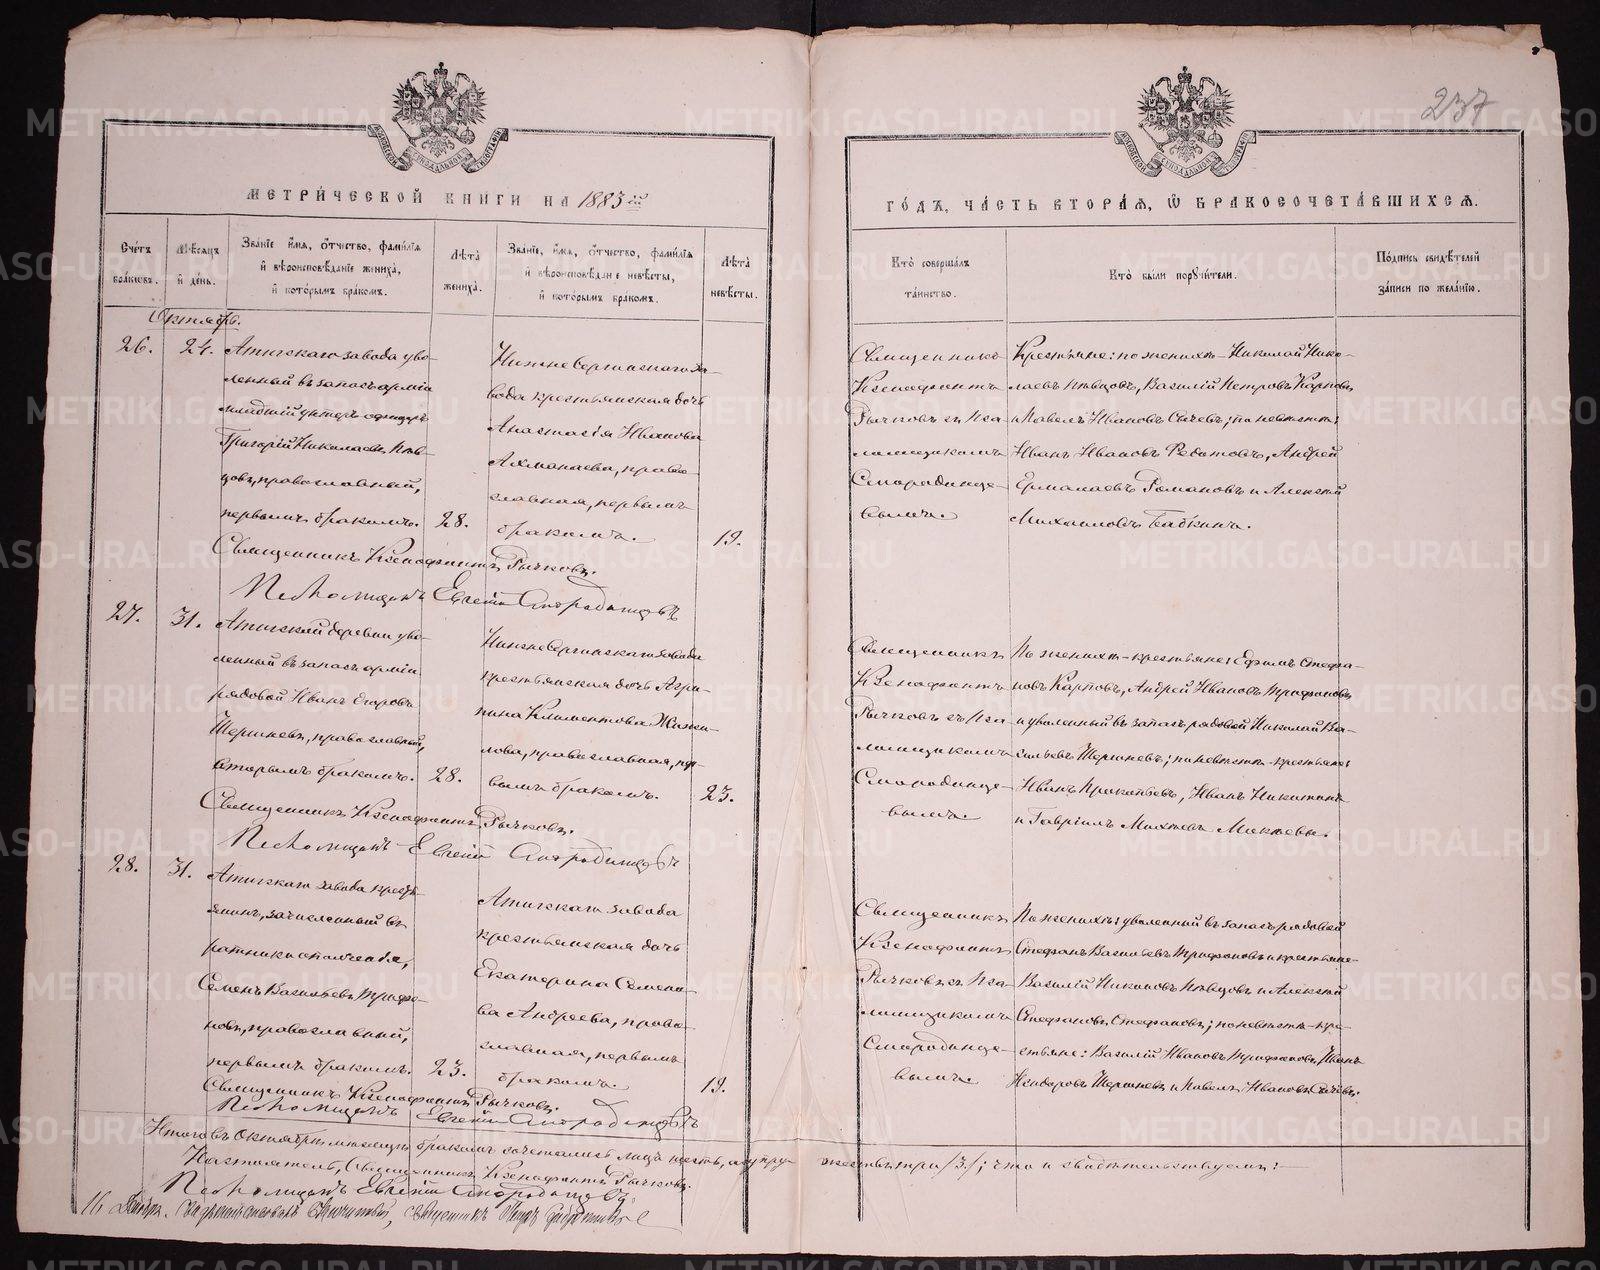 237
МЕТРИ́ЧЕСКОЙ КНИГИ НА 1883 ій
ГО́ДЪ, ЧА́СТЬ ВТОРА́Я, Ѿ БРАКОСОЧЕТА́ВШИХСЯ.
Сче́тъ бра́ковъ.
Мѣ́сяцъ и де́нь.
Зва́нїе, и́мя, о́тчество, фами́лїя и вѣроисповѣ́данїе жениха̀, и кото́рымъ бра́комъ.
Лѣ́та жениха̀.
Зва́нїе, и́мя, о́тчество, фами́лїя и вѣроисповѣ́данїе невѣ́сты, и кото́рымъ бра́комъ.
Лѣ́та невѣ́сты.
Кто̀ соверша́лъ та́инство.
Кто̀ бы́ли поручи́тели.
По́дпись свидѣ́телей за́писи по жела́нїю.
Октябрь.
26.
24.
Атигскаго завода уво-
ленный въ запасъ арміи
младшій унтеръ офицеръ
Григорій Николаевъ Пѣв-
цовъ, православный,
первымъ бракомъ.
28.
Нижнесергинскаго за-
вода крестьянская дочь
Анастасія Иванова
Ахманаева, право-
славная, первымъ
бракомъ.
19.
Священникъ
Ксенофонтъ
Рычковъ съ Пса-
ломщикомъ
Смородинце-
вымъ.
Крестьяне: по женихѣ – Николай Нико-
лаевъ Пѣвцовъ, Василій Петровъ Карповъ
и Павелъ Ивановъ Сычевъ; по невѣстѣ:
Иванъ Ивановъ Федотовъ, Андрей
Ермалаевъ Романовъ и Алексѣй
Михаиловъ Бабкинъ.
Священникъ Ксенофонтъ Рычковъ.
Псаломщикъ Евгеній Смородинцевъ
27.
31.
Атигской деревни уво-
ленный въ запасъ арміи
рядовой Иванъ Егоровъ
Шершневъ, православный,
вторымъ бракомъ.
28.
Нижнесергинскаго завода
крестьянская дочь Агри-
пина Климентова
лова, православная, пер-
вымъ бракомъ.
23.
Священникъ
Ксенофонтъ
Рычковъ съ Пса-
ломщикомъ
Смородинце-
вымъ.
По женихѣ – крестьяне: Ефимъ Стефа-
новъ Карповъ, Андрей Ивановъ Трифановъ
и уволенный въ запасъ рядовой Николай Ва-
сильевъ Шершневъ; по невѣстѣ – крестьяне:
Иванъ Прокопьевъ, Иванъ Никитинъ
и Гавріилъ Михѣевъ Мокѣевы.
Священникъ Ксенофонтъ Рычковъ.
Псаломщикъ Евгеній Смородинцевъ
28.
31.
Атигскаго завода кресть-
янинъ, зачисленный въ
ратники ополченія,
Семенъ Васильевъ Трифа-
новъ, православный,
первымъ бракомъ.
23.
Атигскаго завода
крестьянская дочь
Екатерина Семено-
ва Андреева, право-
славная, первымъ
бракомъ.
19.
Священникъ
Ксенофонтъ
Рычковъ съ Пса-
ломщикомъ
Смородинце-
вымъ.
По женихѣ: уволенный въ запасъ рядовой
Стефанъ Васильевъ Трифановъ и крестьяне –
Василій Никоновъ Пѣвцовъ и Алексѣй
Стефановъ Стефановъ; по невѣстѣ – кре-
стьяне: Василій Ивановъ Трифановъ, Иванъ
Исидоровъ Шершневъ и Павелъ Ивановъ Сычевъ.
Священникъ Ксенофонтъ Рычковъ.
Псаломщикъ Евгеній Смородинцевъ
Итого въ Октябрѣ мѣсяцѣ бракомъ сочетались лицъ шесть, а супру-
жествъ три /3/; что и свидѣтельствуемъ: –
Настоятель, Священникъ Ксенофонтъ Рычковъ.
Псаломщикъ Евгеній Смородинцевъ.
16 священникъ Петръ